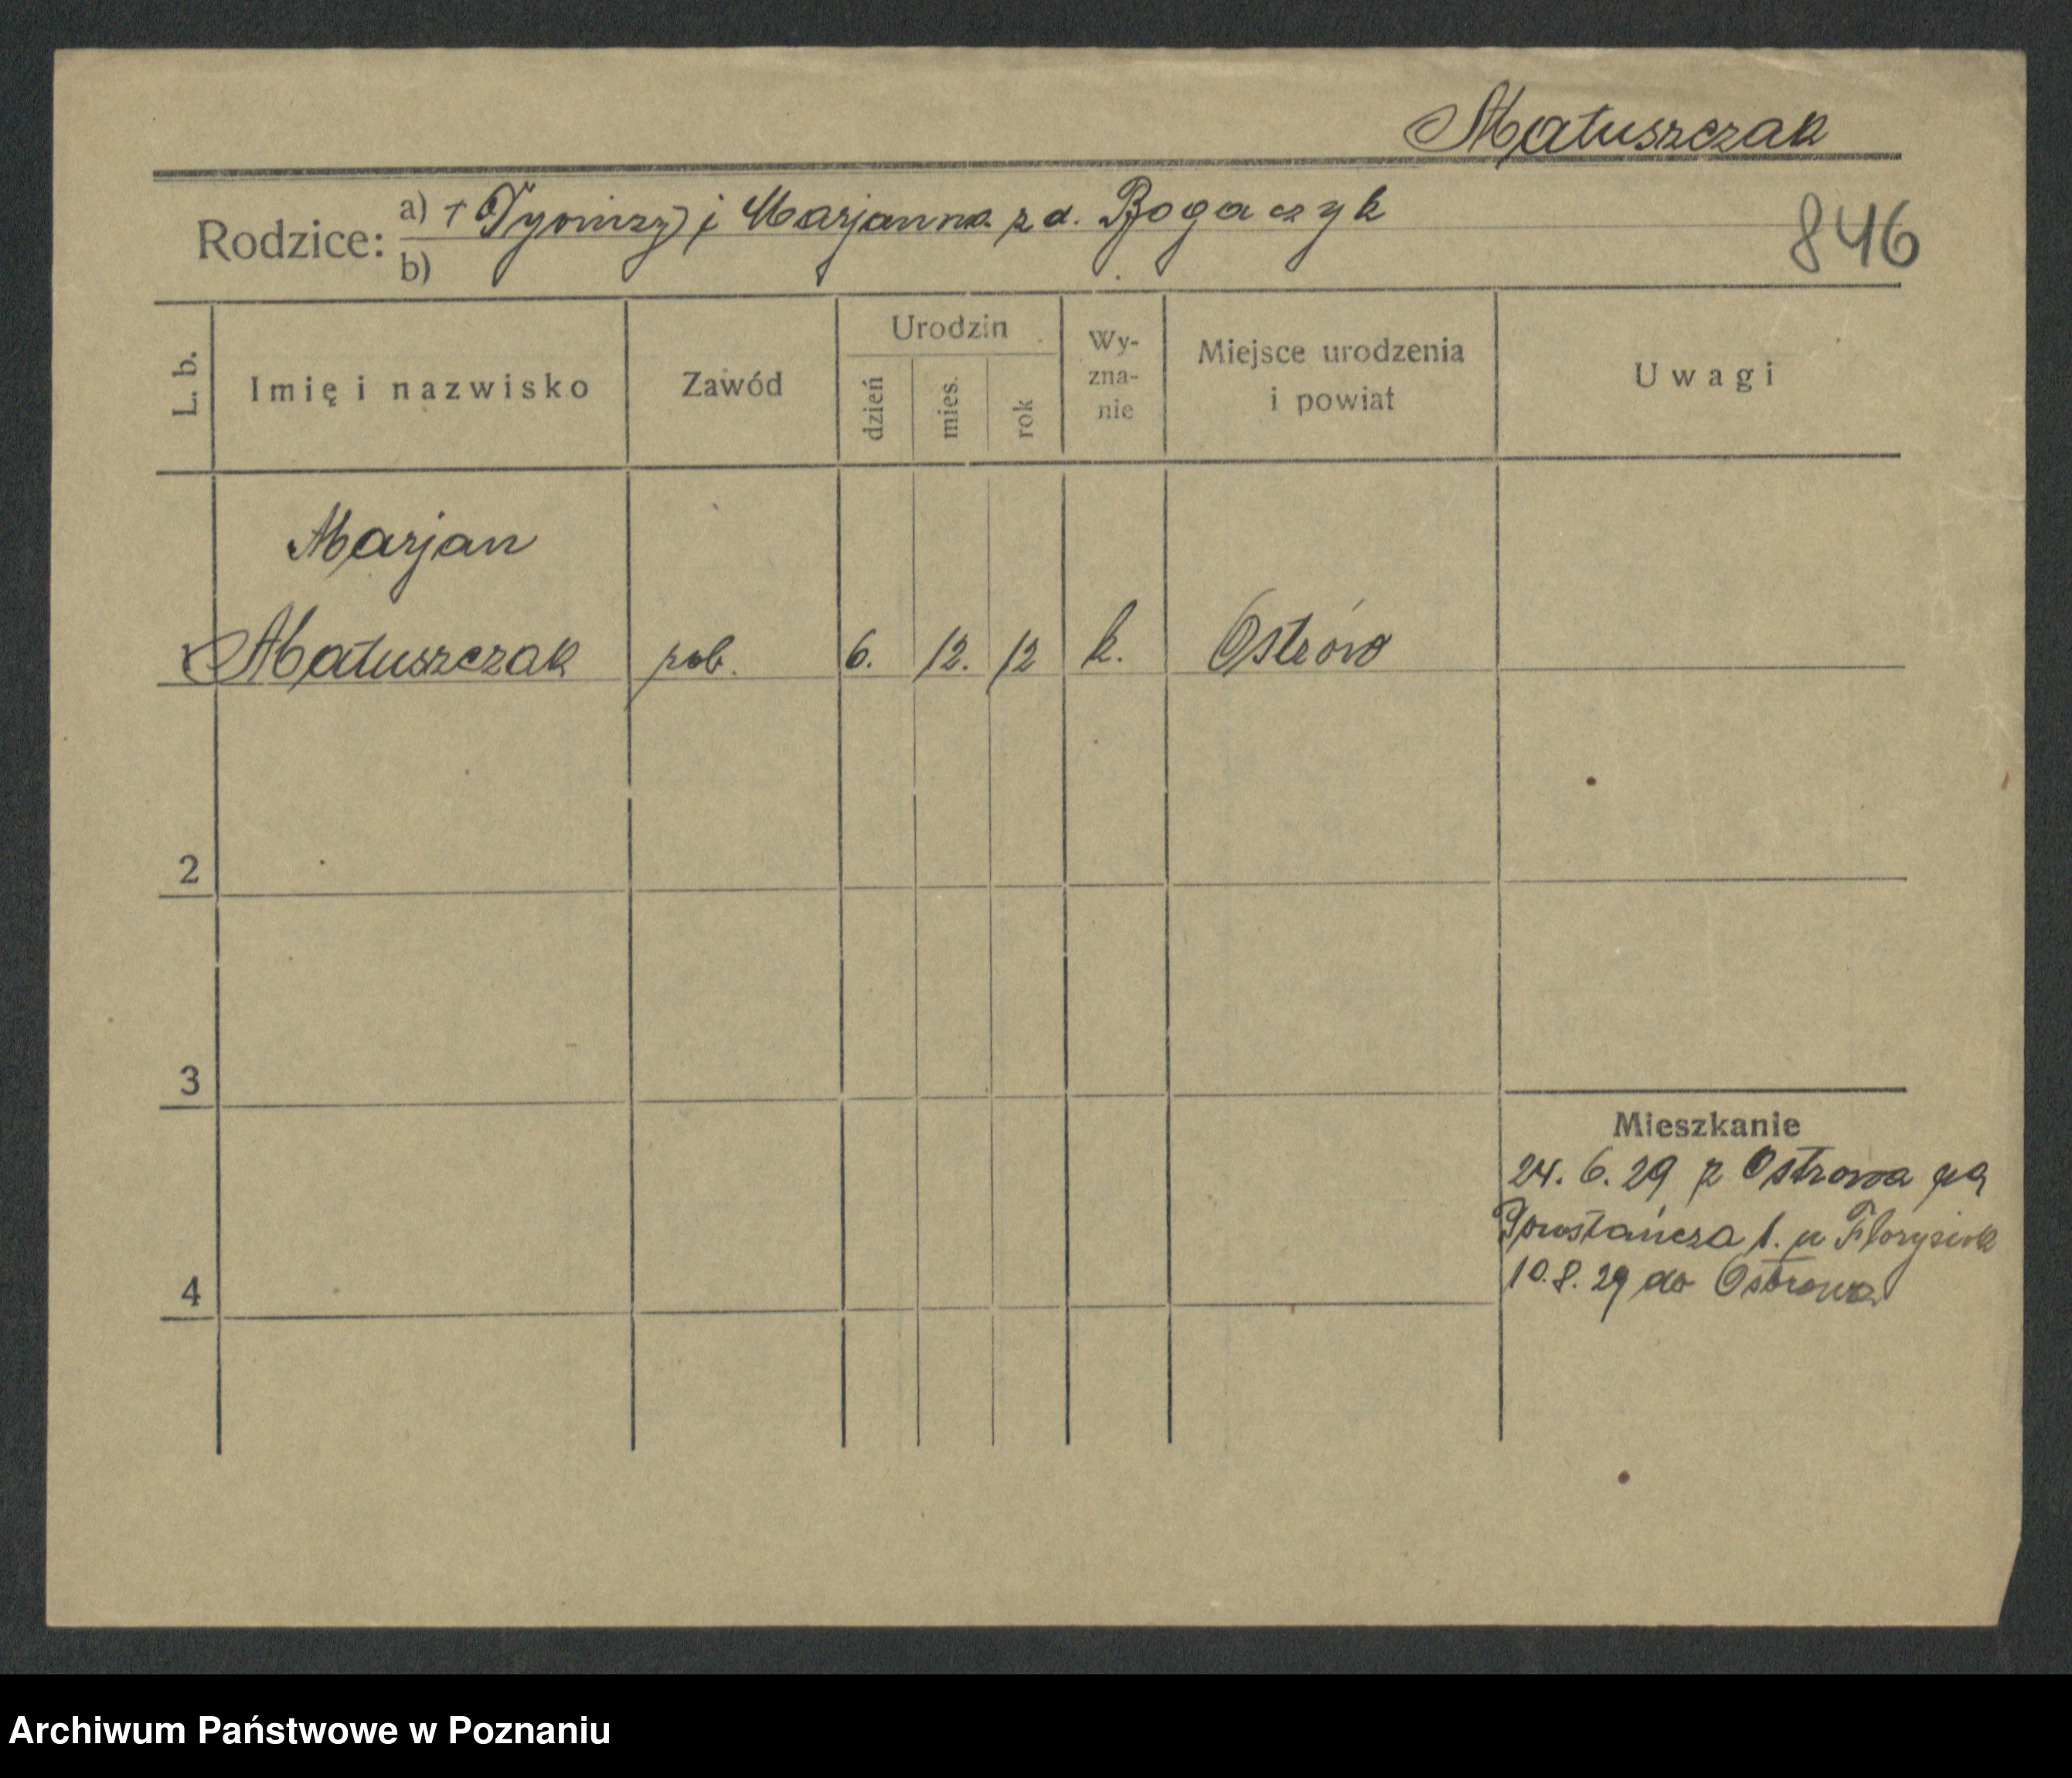 Matuszczak
Rodzice: a) + i Marjanna z d. Bogaczyk
b)
846
L. b.
Imię i nazwisko
Zawód
Urodzin
dzień
mies.
rok
Wy-
zna-
nie
Miejsce urodzenia
i powiat
Uwagi
Marjan
Matuszczak rob. 6. 12. 12 k. Ostrów
2
3
Mieszkanie
24. 6. 29 z Ostrowa
Powstańcza 1. u
10. 8. 29 do Ostrowa
4
Archiwum Państwowe w Poznaniu